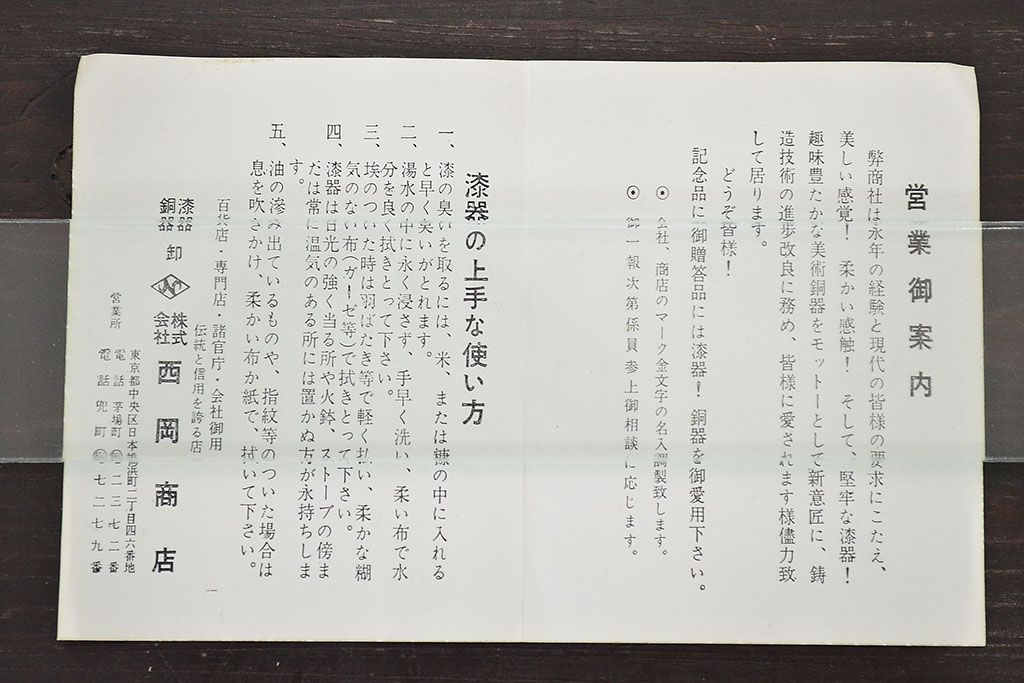 営業御案内
弊商社は永年の経験と現代の皆様の要求にこたえ、
美しい感覚！　柔かい感触！　そして、堅牢な漆器！
趣味豊たかな美術銅器をモットーとして新意匠に、鋳
造技術の進歩改良に務め、皆様に愛されます様儘力致
して居ります。
どうぞ皆様！
記念品に御贈答品には漆器！銅器を御愛用下さい。
⊙　会社、商店のマーク金文字の名入調製致します。
⊙　御一報次第係員参上御相談に応じます。
漆器の上手な使い方
一、漆の臭いを取るには、米、または糠の中に入れる
と早く臭いがとれます。
二、湯水の中に永く浸さず、手早く洗い、柔い布で水
分を良く拭きとって下さい。
三、埃のついた時は羽ばたき等で軽く払い、柔かな糊
気のない布（ガーゼ等）で拭きとって下さい。
四、漆器は日光の強く当る所や火鉢、ストーブの傍ま
だは常に温気のある所には置かぬ方が永持ちしま
す。
五、油の滲み出ているものや、指紋等のついた場合は
息を吹きかけ、柔かい布か紙で、拭いて下さい。
百貨店・専門店・諸官庁・会社御用
伝統と信用を誇る店
漆器
銅器
卸
株式
会社
西岡商店
営業所
東京都中央区日本橋浜町二丁目四六番地
電話茅場町　二三七二番
電話兜町　七二七九番